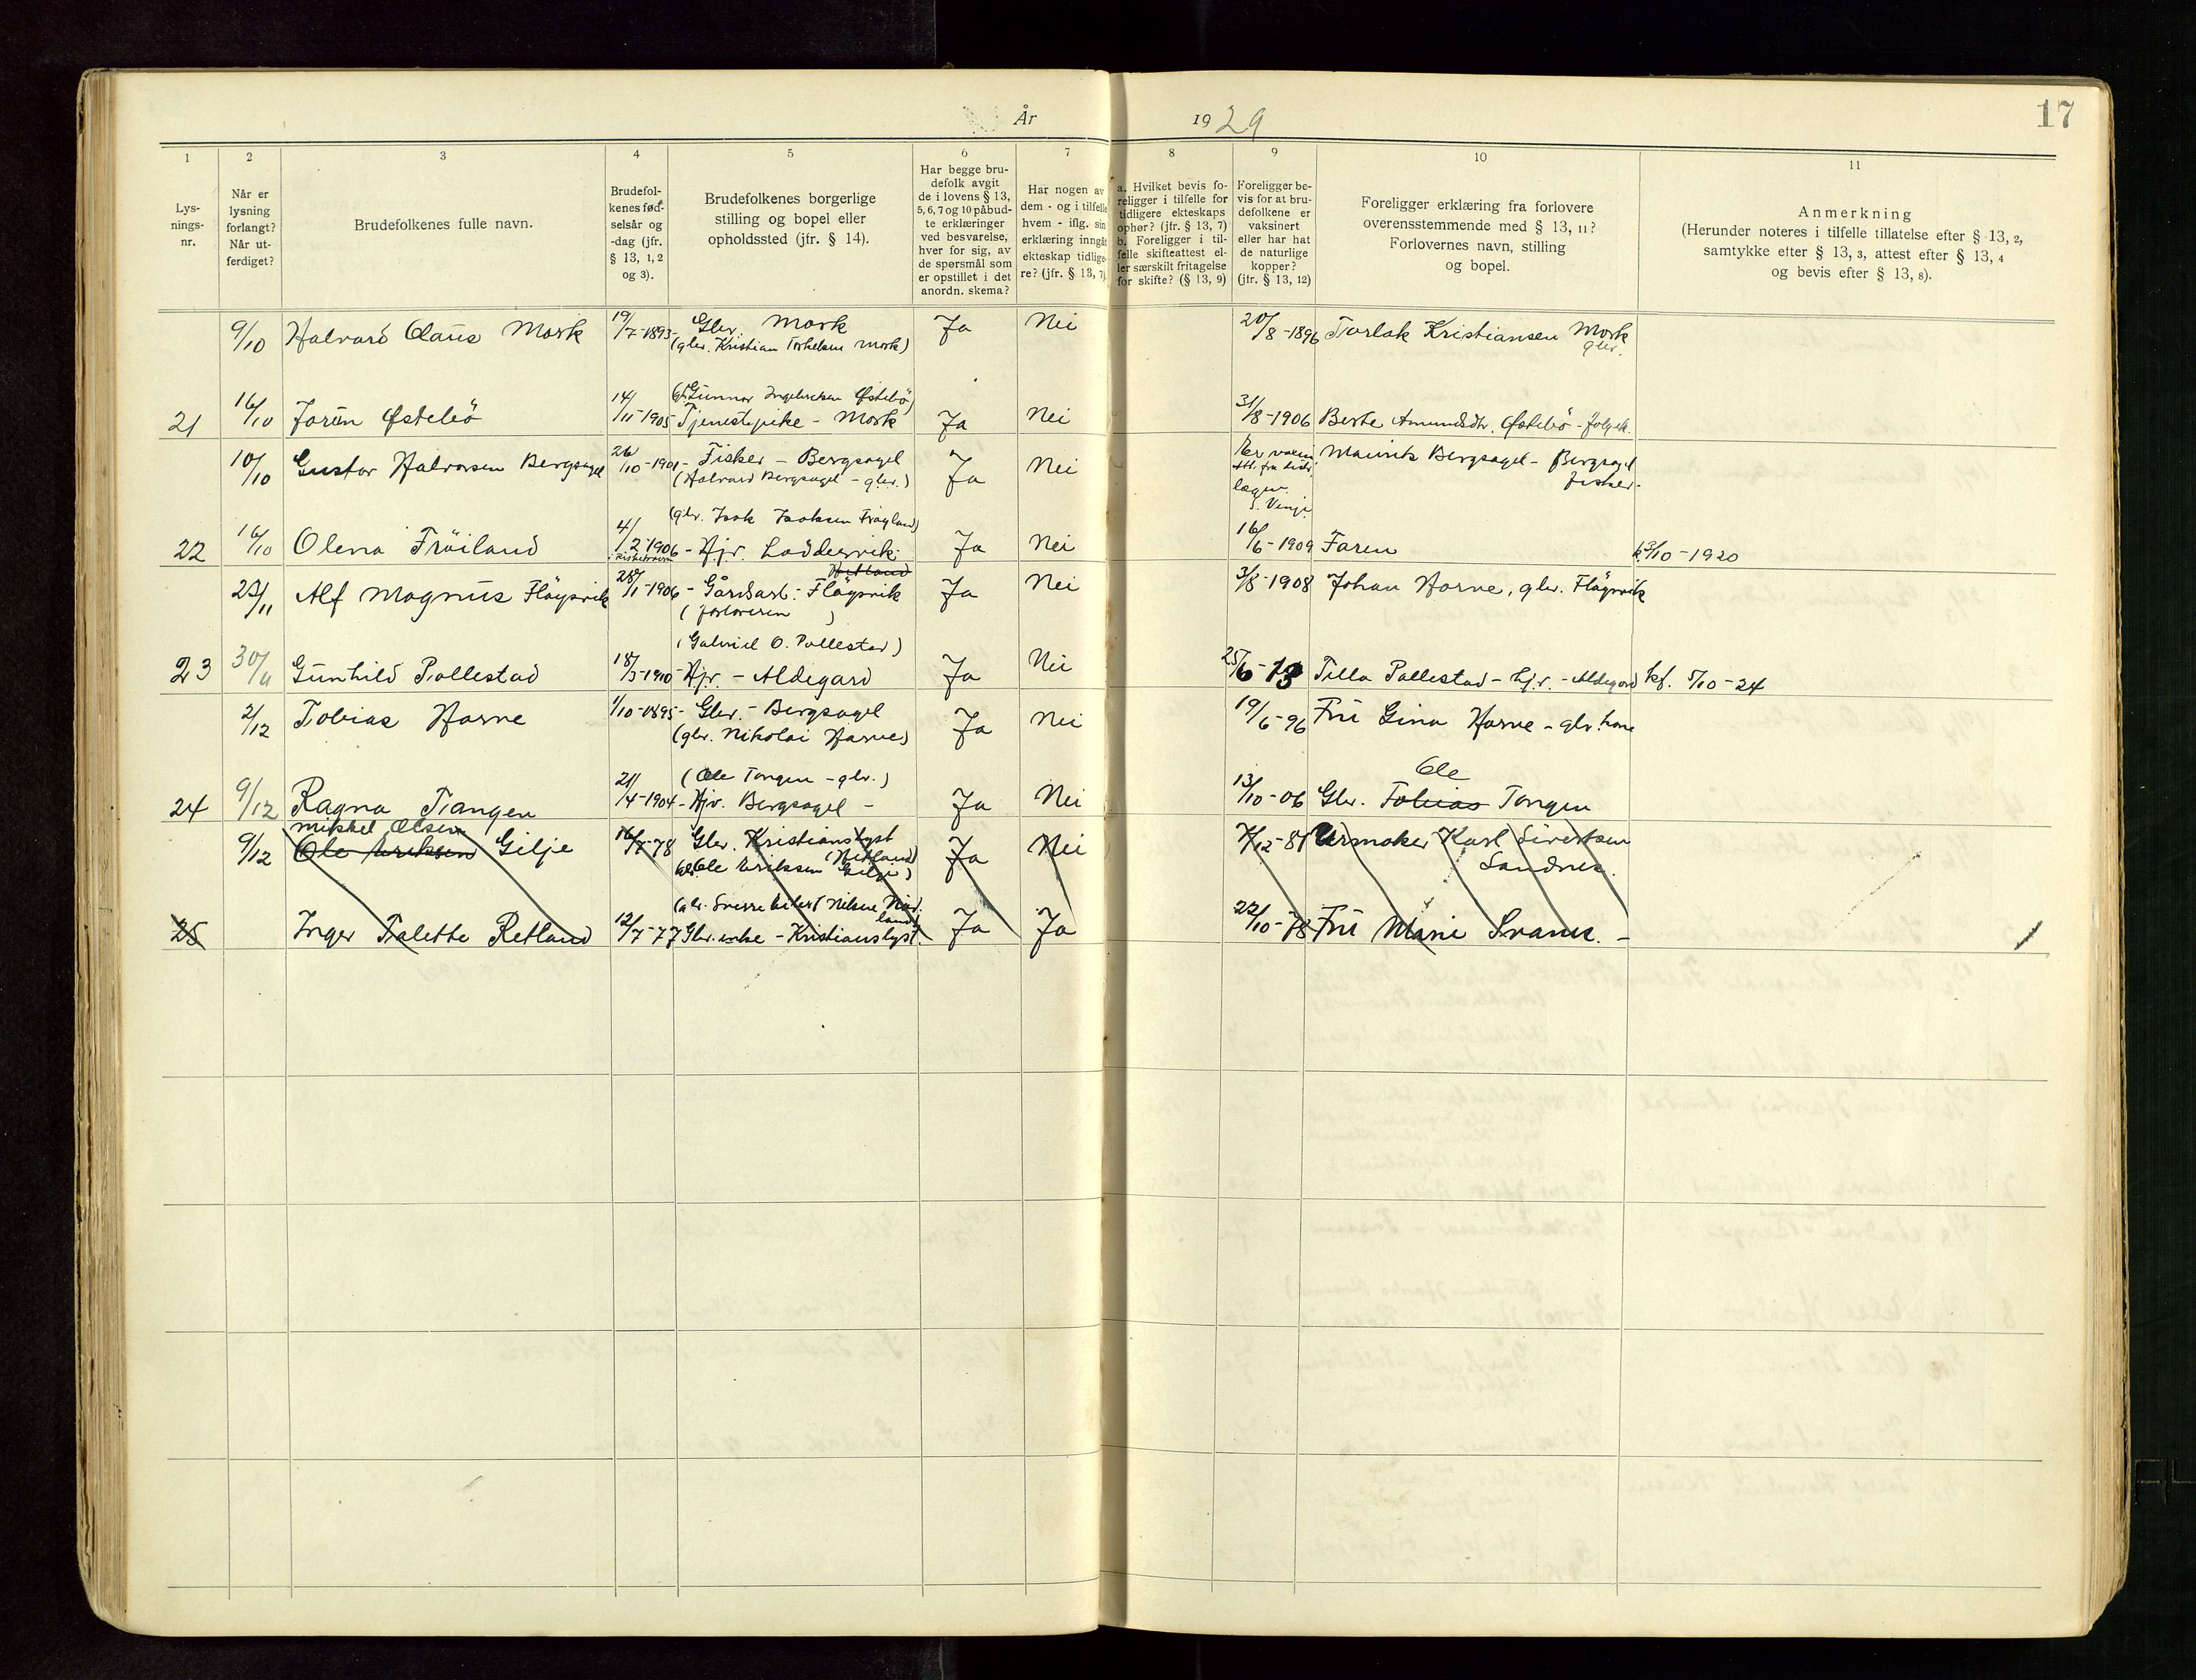 År 1929
17
1
2
3
4
5
6
7
8
9
10
11
Lys-
nings-
nr.
Når er
lysning
forlangt?
Når ut-
ferdiget?
Brudefolkenes fulle navn.
Brudefol-
kenes fød-
selsår og
-dag (jfr.
§ 13, 1, 2
og 3).
Brudefolkenes borgerlige
stilling og bopel eller
opholdssted (jfr. § 14).
Har begge bru-
defolk avgit
de i lovens § 13,
5, 6, 7 og 10 påbud-
te erklæringer
ved besvarelse,
hver for sig, av
de spørsmål som
er opstillet i det
anordn. skema?
Har nogen av
dem - og i tilfelle
hvem - iflg. sin
erklæring inngåt
ekteskap tidlige-
re? (jfr. § 13, 7)
a. Hvilket bevis fo-
religger i tilfelle for
tidligere ekteskaps
ophør? (jfr. § 13, 7)
b. Foreligger i til-
felle skifteattest el-
ler særskilt fritagelse
for skifte? (§ 13, 9)
Foreligger be-
vis for at bru-
defolkene er
vaksinert
eller har hat
de naturlige
kopper?
(jfr. § 13, 12)
Foreligger erklæring fra forlovere
overensstemmende med § 13, 11?
Forlovernes navn, stilling
og bopel.
Anmerkning
(Herunder noteres i tilfelle tillatelse efter § 13, 2,
samtykke efter § 13, 3, attest efter § 13, 4
og bevis efter § 13, 8).
9/10 Halvard Claus Mork 19/7-1893- Gbr. Mork Ja Nei 20/8-1896 Torlak Kristiansen Mork
(gbr. Kristian Torkelsen Mork) gbr.
(Gbr. Gunnar Ingebretsen Østebö)
21 16/10 Jorun Østebö 14/11-1905 Tjenestepike - Mork Ja Nei 31/8-1906 Berte Amundsdtr. Østebö -
10/10 Gustav Halvorsen Bergsagel 26/10-1901- Fisker - Bergsagel Ja Nei Mauritz Bergsagel - Bergsagel
(Halvard Bergsagel - gbr.) fisker.
(gbr. Isak Isaksen Fröyland)
22 16/10 Olena Fröiland 4/2 1906 - Hjv. Laddesvik Ja Nei 16/6-1909 Faren k 3/10-1920
Hetland
23/11 Alf Magnus Fløysvik 28/1-1906 - Gårdsarb. Flöysvik Ja Nei 3/8-1908 Johan Horve, gbr. Flöysvik
(forloveren)
(Gabriel O. Pollestad)
23 30/11 Gunhild Pollestad 18/3-1910 - Hjv. - Aldegard Ja Nei 25/6-13 Tilla Pollestad - hjv. - Aldegard kf. 5/10-24
2/12 Tobias Horve 1/10-1895- Gbr. - Bergsagel Ja Nei 19/6-96 Fru Gina Horve - gbr. kone
(gbr. Nikolai Horve)
(Ole Tangen - gbr.) Ole
24 9/12 Ragna Tangen 21/4-1904 - Hjv. Bergsagel - Ja Nei 13/10-06 Gbr. Tobias Tangen
Mikkel Olsen
9/12 Ole Eriksen Gilje 16/7-78 Gbr. Kristianslyst Ja Nei 7/12-81 Urmaker Karl Sivertsen
(Hetland)
(Gbr. Ole Eriksen Gilje) Sandnes.
25 Inger Talette Retland 12/7-77 Gbr. enke - Kristianslyst. Ja Ja 22/10-78 Fru Marie Svanes. -